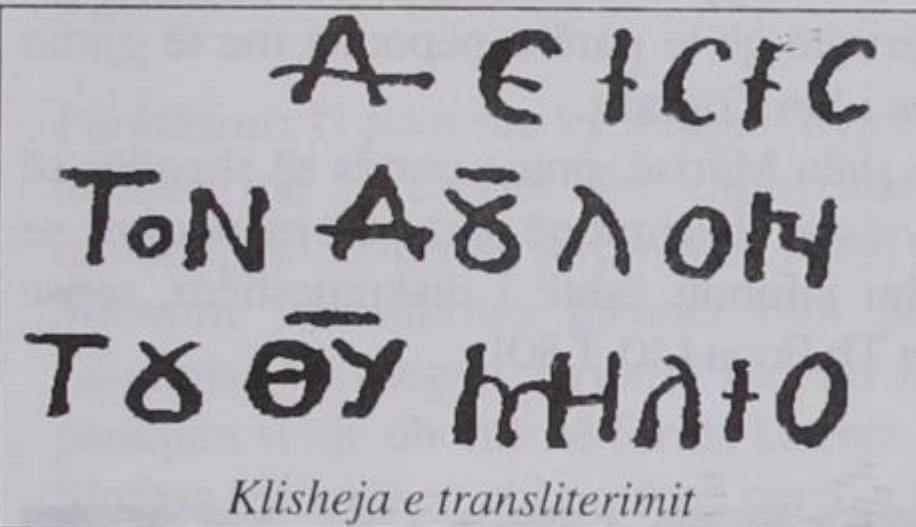 Δ Є Ι C Ι C
ΤΟΝ ΔȢΛΟΝ
ΤȢ Θ̅Υ̅ ΜΗΛΙΟ
Klisheja e transliterimit